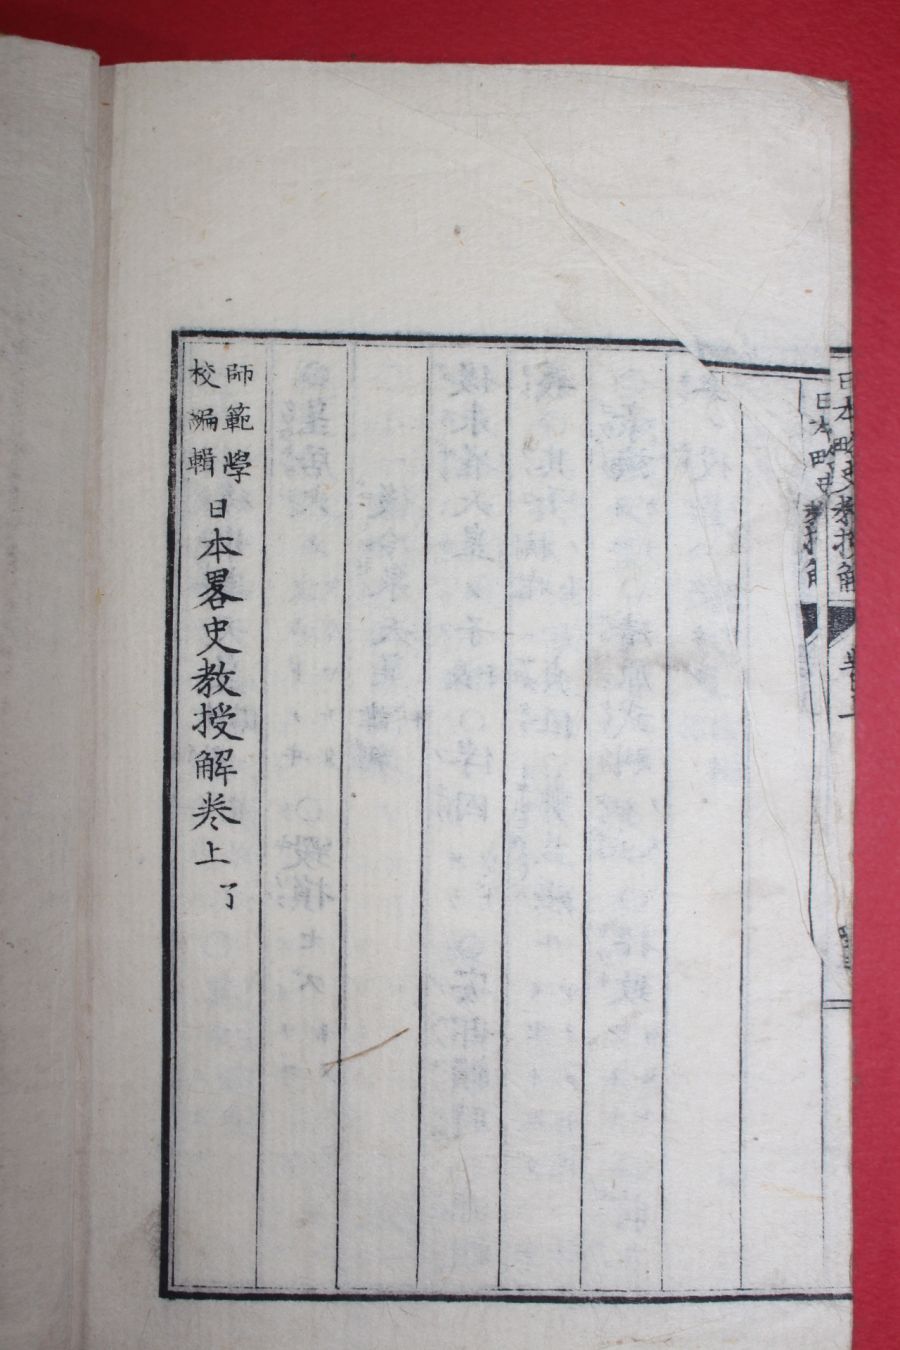 日本略史教授解
日本略史教授解
師範学
校編輯
日本畧史教授解巻上
了